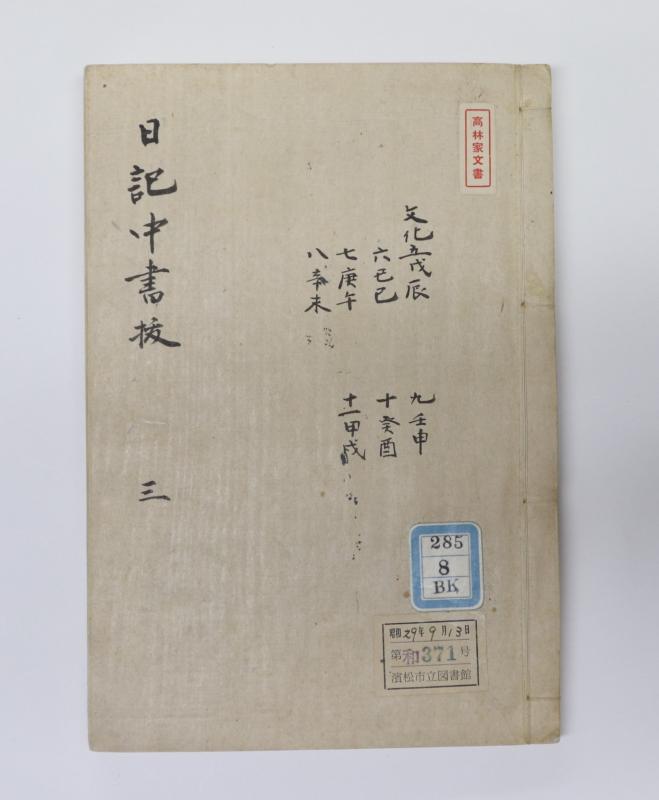 高林家文書
文化五戊辰
六己巳
七庚午
八辛未
九壬申
十癸酉
十一甲戌
日記中書抜
三
285
8
BK
昭和29年9月13日
第和371号
濱松市立図書館